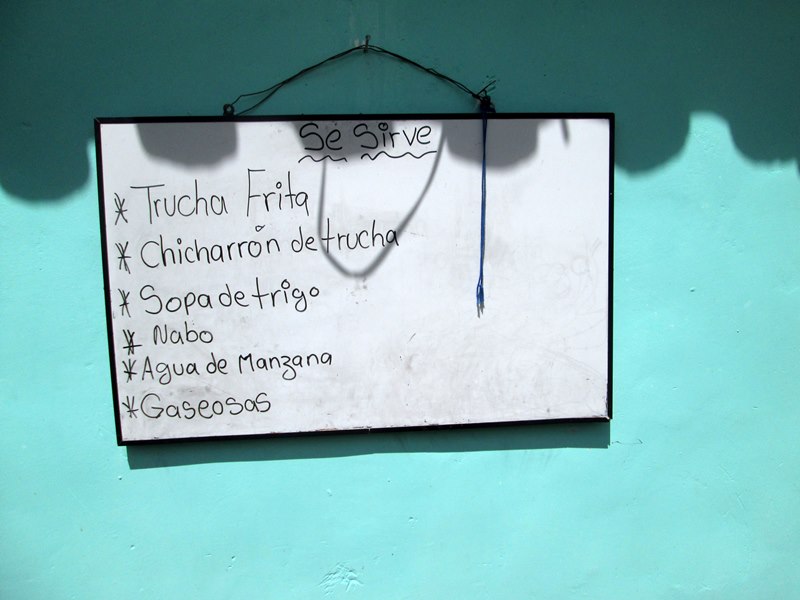 Se Sirve
* Trucha Frita
* Chicharrón de trucha
* Sopa de trigo
* Nabo
* Agua de Manzana
* Gaseosas